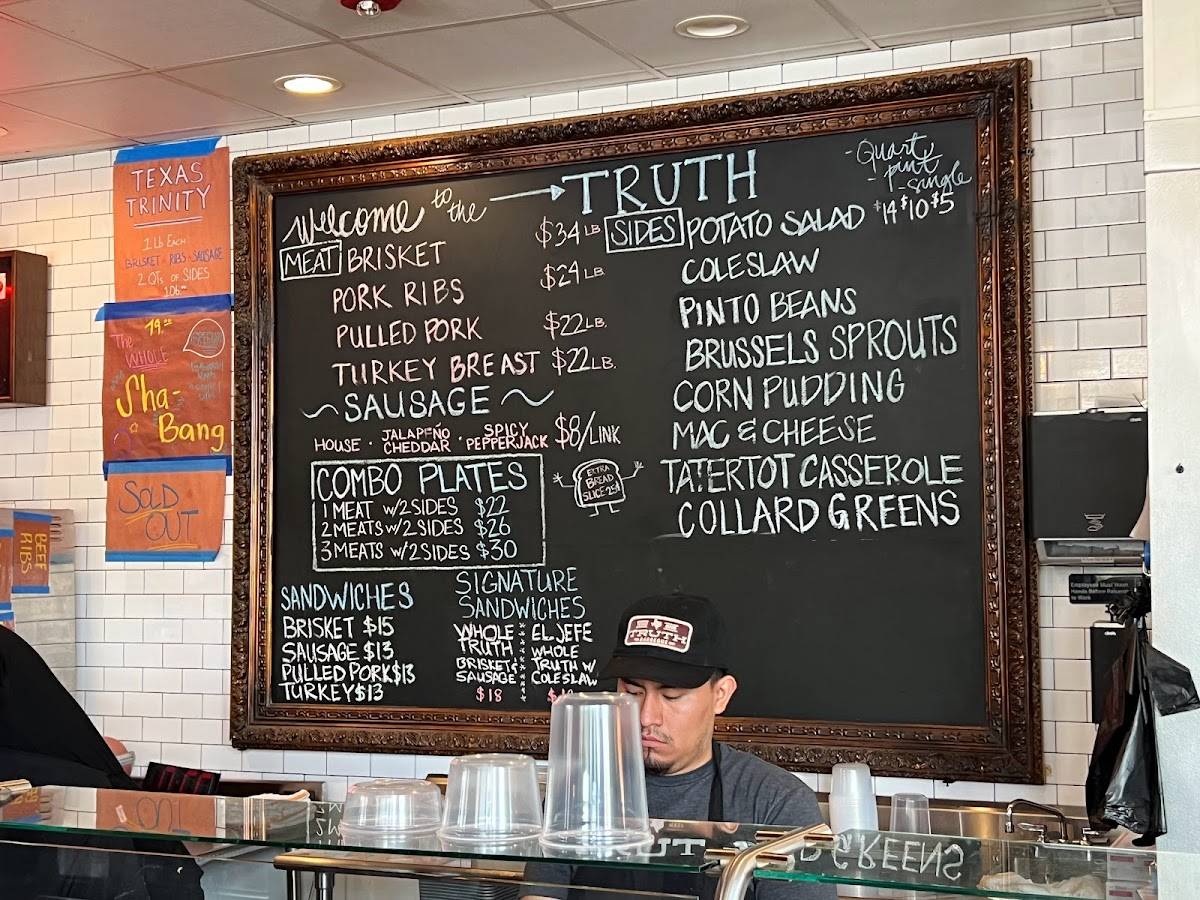 TEXAS
TRINITY
1 Lb EACH
BRISKET · RIBS · SAUSAGE
2 QTs OF SIDES
106.00
79.00
The
WHOLE
Sha-
Bang
SOLD
OUT
BEEF
RIBS
Welcome to the → TRUTH
MEAT BRISKET $34 LB
PORK RIBS $24 LB
PULLED PORK $22 LB.
TURKEY BREAST $22 LB.
~ SAUSAGE ~
HOUSE · JALAPEÑO CHEDDAR · SPICY PEPPERJACK $8/LINK
COMBO PLATES
1 MEAT w/2 SIDES $22
2 MEATS w/2 SIDES $26
3 MEATS w/2 SIDES $30
EXTRA
BREAD
SLICE 25¢
SANDWICHES
BRISKET $15
SAUSAGE $13
PULLED PORK $13
TURKEY $13
SIGNATURE
SANDWICHES
WHOLE
TRUTH
BRISKET &
SAUSAGE
$18
EL JEFE
WHOLE
TRUTH W/
COLESLAW
-Quart
- pint
- single
$14 $10 $5
SIDES POTATO SALAD
COLESLAW
PINTO BEANS
BRUSSELS SPROUTS
CORN PUDDING
MAC & CHEESE
TATERTOT CASSEROLE
COLLARD GREENS
TRUTH
Employees Must Wash
Hands Before Returning
to Work